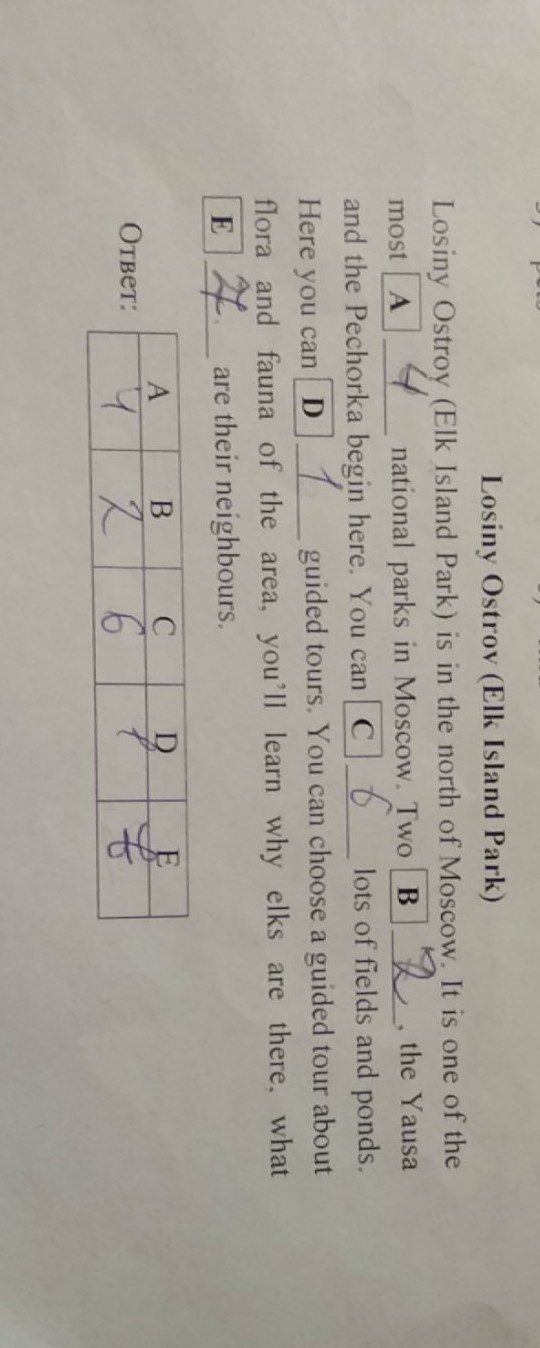 Losiny Ostrov (Elk Island Park)
Losiny Ostrov (Elk Island Park) is in the north of Moscow. It is one of the
most A 4 national parks in Moscow. Two B 2, the Yausa
and the Pechorka begin here. You can C 6 lots of fields and ponds.
Here you can D 1 guided tours. You can choose a guided tour about
flora and fauna of the area, you'll learn why elks are there, what
E are their neighbours.
A B C D E
Ответ: 4 2 6